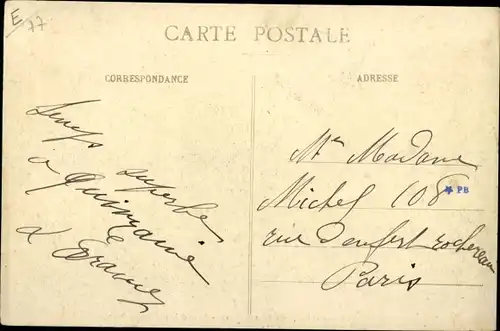 E
77
CARTE POSTALE
CORRESPONDANCE
ADRESSE
Temps superbe
a
a
Mr Madame
Michel 108
PB
rue Denfert Rochereau
Paris